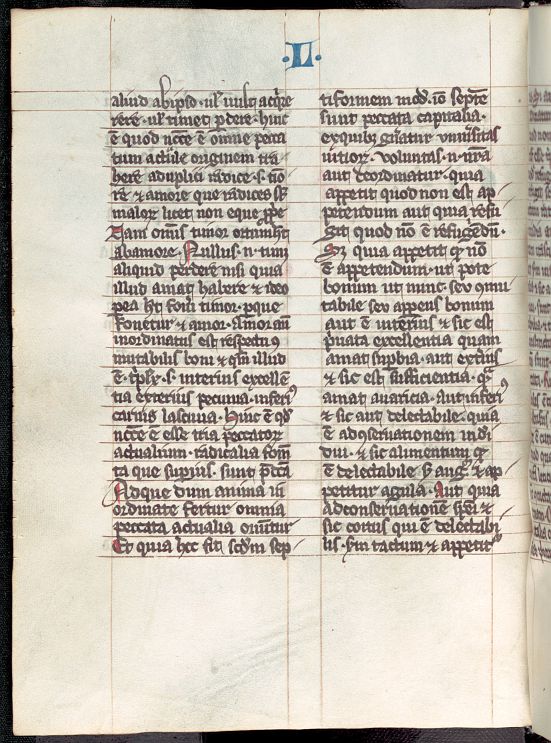 ·L·
aliud ab ipso · ul' uult acq̇re
rere · ul' timet ꝑdere · hinc
ē quod ncc̄e ē omne pecca
tum actūle originem tra
here a duplici radice · s · tīo
re ⁊ amore que radices st̄
malorꝫ licet non eque ꝓp̄e
Nam omīs timor ortum ht̄
ab amore · Nullus · n · tīm
aliquid perdere nisi quia
illud amat habere ⁊ ideo
ꝑ ea ht̄ fom̄ timor · ꝑ que
fouetur ⁊ amor · Amor aūt
inordinatus est respectu ꝯ
mutabilis boni ⁊ q̄m illud
ē · tͥplx̄ · s · interius excellē
tia exterius pecunia · inferiꝰ
carnis lasciuia · Hinc ē qd̓
ncc̄e ē esse tria peccatorꝫ
actualium · radicalia fom̄
ta que supius · sunt p̄cc̄a
Ad que dum anima in
ordinate fertur omnia
peccata actualia oriūtur
Et quia hec fit scd̄m sep
tiformem mod̄ · iō septē
sunt peccata capitalia ·
ex quibꝫ gn̄atur uniu̓sitas
uitiorꝫ · Voluntas · n · nr̄a
aut deordinatur · quia
appetit quod non est ap
petendum aut quia refu
git quod nō ē refugēdū ·
Sꝫ quia appetit qͦ nō
ē appetendum · ut pote
bonum ut nunc · seu cōmu
tabile seu apparens bonum
aut ē interius ⁊ sic est
pͥuata excellentia quam
amat suꝑbia · aut extius
⁊ sic est sufficientia · qͣ
amat auaricia · aut inferiꝰ
⁊ sic aut delectabile · quia
ē ad ꝯseruationem indͥ
dui · ⁊ sic alimentum qͦ
ē delectabile ⁊ ap
petitur a gula · Aut quia
ad conseruationē sp̄ei ⁊
sic coitus qui ē delectabi
lis · sm̄ tactum ⁊ appetitͬ